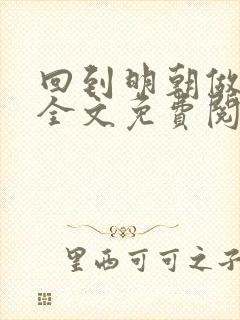 回到明朝做
全文免費閱
里西可可之子